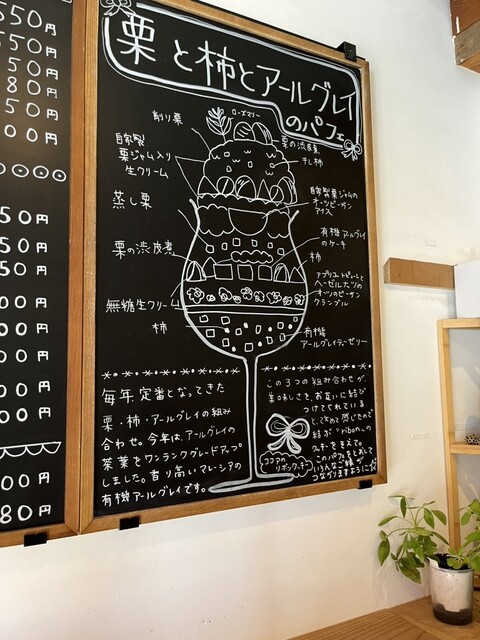 550円
550円
50円
80円
50円
00円
50円
50円
50円
00円
00円
00円
00円
00円
00円
80円
栗と柿とアールグレイ
のパフェ
ローズマリー
削り栗
栗の渋皮煮
干し柿
自家製
栗ジャム入り
生クリーム
自家製栗ジャムの
オーツビーガン
アイス
蒸し栗
有機アールグレイ
のケーキ
栗の渋皮煮
柿
アプリコットピューレと
ヘーゼルナッツの
オーツのビーガン
クランブル
無糖生クリーム
柿
有機
アールグレイティーゼリー
毎年定番となってきた
栗・柿・アールグレイの組み
合わせ。今年は、アールグレイの
茶葉をワンランクグレードアップ
しました。香り高いマレーシアの
有機アールグレイです。
この3つの組み合わせが、
美味しさを、お互いに結び
つけてくれている
と、改めて感じたので
結ぶ"ribon"の
クッキーをそえて。
このパフェをとおして
いろんなご縁が
つながりますように
ココアの
リボンクッキー